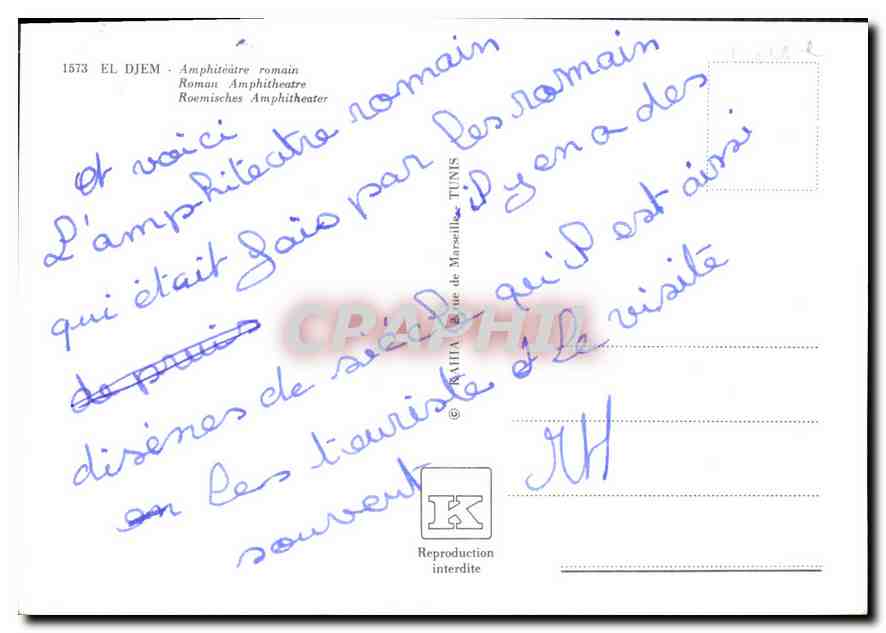 1573 EL DJEM - Amphitéâtre romain
Roman Amphitheatre
Roemisches Amphitheater
et voici
L'amphiteatre romain
qui était fais par les romain
de puis
il y en a des
disénes de siècle qu'il est aissi
en les touriste le visite
souvent
MH
© KAHIA Rue de Marseille - TUNIS
CPAPHIL
K
Reproduction
interdite